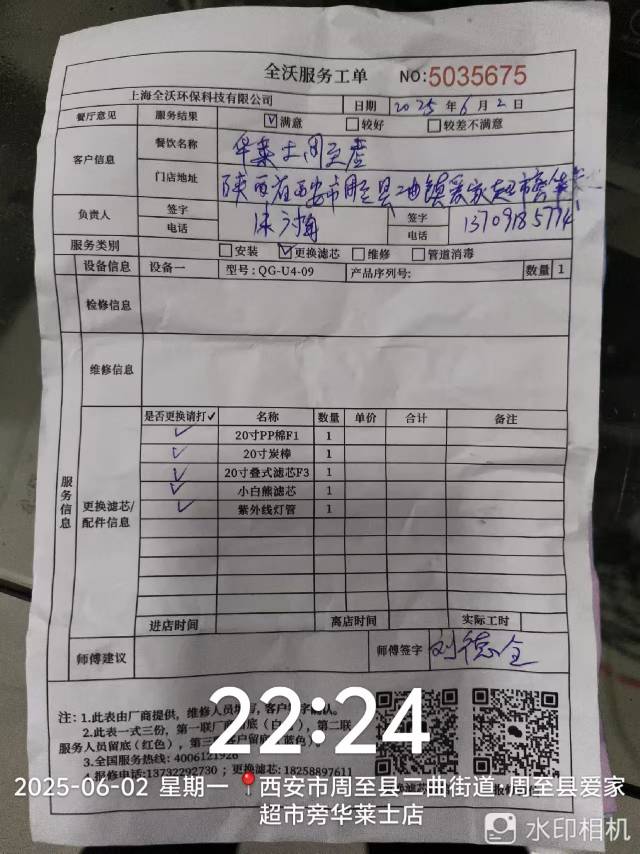 全沃服务工单 NO:5035675
上海全沃环保科技有限公司 日期 2025年6月2日
餐厅意见 服务结果 ☑满意 □较好 □较差不满意
客户信息 餐饮名称 华莱士周至店
门店地址 陕西省西安市周至县二曲镇爱家超市旁华莱士
负责人 签字 签字
电话 电话 13709185774
服务类别 □安装 ☑更换滤芯 □维修 □管道消毒
设备信息 设备一 型号:QG-U4-09 产品序列号: 数量 1
检修信息
维修信息
服务信息
更换滤芯/配件信息
是否更换请打✓ 名称 数量 单价 合计 备注
✓ 20寸PP棉F1 1
✓ 20寸炭棒 1
✓ 20寸叠式滤芯F3 1
✓ 小白熊滤芯 1
✓ 紫外线灯管 1
进店时间 离店时间 实际工时
师傅建议 师傅签字 刘德全
注:1.此表由厂商提供,维修人员填写,客户签字确认。
2.此表一式三份,第一联厂商留底(白色),第二联
服务人员留底(红色),第三联客户留底(蓝色)。
3.全国服务热线:4006121926
4.报修电话:13732292730 ; 更换滤芯:18258897611
22:24
2025-06-02 星期一 西安市周至县二曲街道·周至县爱家
超市旁华莱士店
水印相机